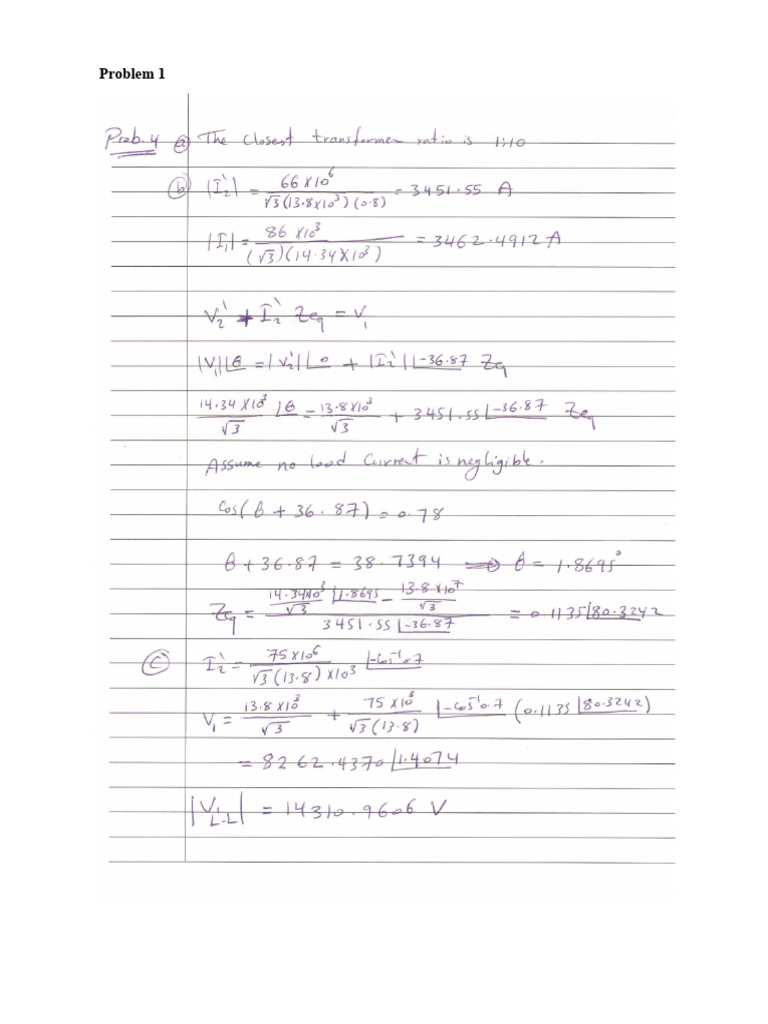 Problem 1
Prob. 4 (a) The closest transformer ratio is 1:10
(b) |I₂'| = 66 x 10⁶ / √3 (13.8 x 10³) (0.8) = 3451.55 A
|I₁| = 86 x 10³ / (√3)(14.34 x 10³) = 3462.4912 A
V₂' + I₂' Zeq = V₁
|V₁| ∠θ = |V₂'| ∠0 + |I₂'| ∠-36.87 Zeq
14.34 x 10³ / √3 ∠θ = 13.8 x 10³ / √3 + 3451.55 ∠-36.87 Zeq
Assume no load current is negligible.
Cos(θ + 36.87) = 0.78
θ + 36.87 = 38.7394 ⇒ θ = 1.8695°
Zeq = (14.34 x 10³ / √3 ∠1.8695 - 13.8 x 10³ / √3) / 3451.55 ∠-36.87 = 0.1135 ∠80.3242
(C) I₂' = 75 x 10⁶ / √3 (13.8) x 10³ ∠-Cos⁻¹0.7
V₁ = 13.8 x 10³ / √3 + 75 x 10⁶ / √3 (13.8) ∠-Cos⁻¹0.7 (0.1135 ∠80.3242)
= 8262.4370 ∠1.4074
|V₁ L.L| = 14310.9606 V